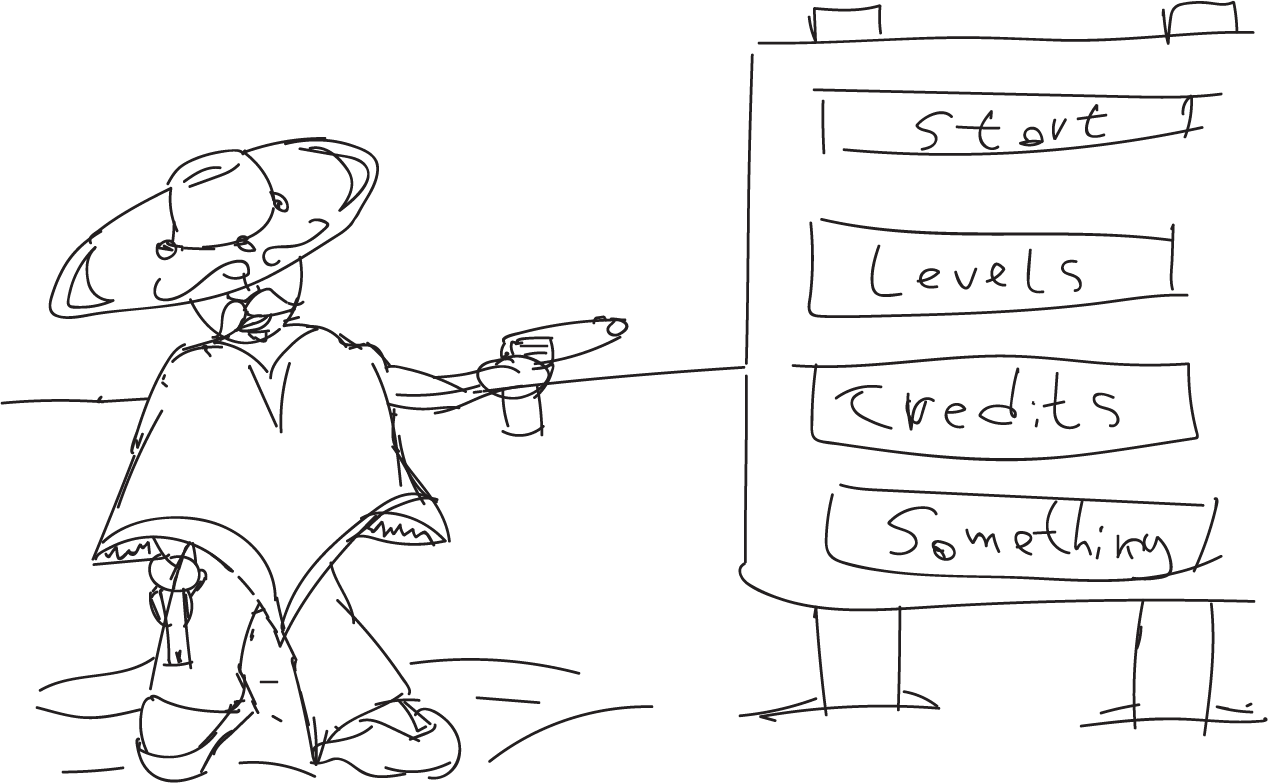 Start
Levels
Credits
Something